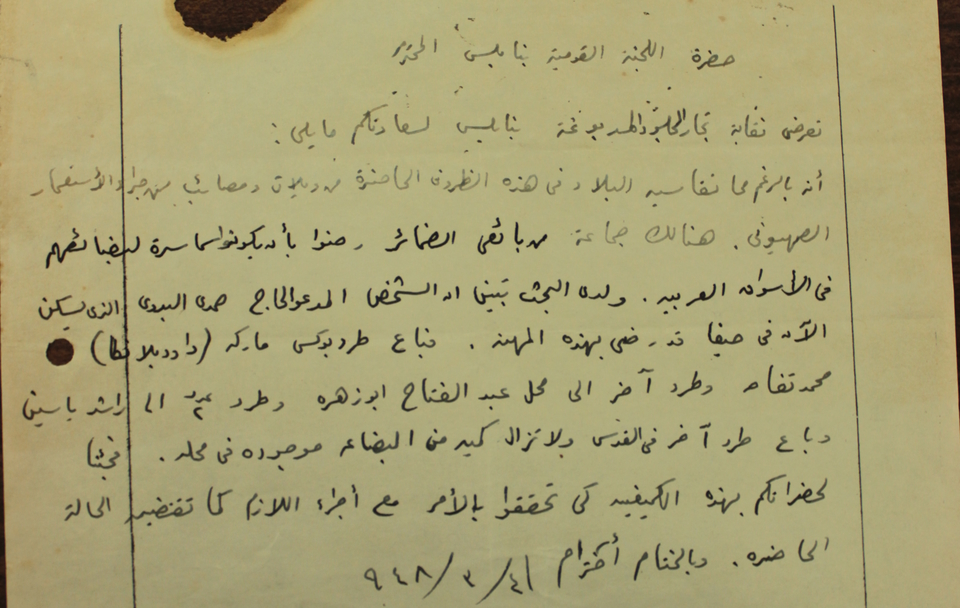 حضرة اللجنة القومية بنابلس المحترم
تعرض نقابة تجار الجلود المدبوغة بنابلس لسعادتكم مايلي :
أنه بالرغم مما تقاسيه البلاد فى هذه الظروف الحاضرة من ويلات ومصائب من جراء الأستعمار
الصهيونى . هنالك جماعة من بائعى الضمائر رضوا بأن يكونوا سماسرة لبضائعهم
فى الأسواق العربيه . ولدى البحث تبين ان الشخص المدعو الحاج حمدى البدوى الذى يسكن
الآن فى حيفا قد رضى بهذه المهنه . فباع طرد بوكس ماركه (داود بلا
محمد تفاحه وطرد آخر الى محل عبد الفتاح ابوزهره وطرد عدد ٢ الى راشد ياسين
وباع طرد آخر فى القدس ولا تزال كميه من البضاعه موجوده فى محله . فجئنا
لحضراتكم بهذه الكيفيه كى تحققوا بالأمر مع أجراء اللازم كما تقتضيه الحالة
الحاضره . وبالختام أحترام ٩٤٨/٣/